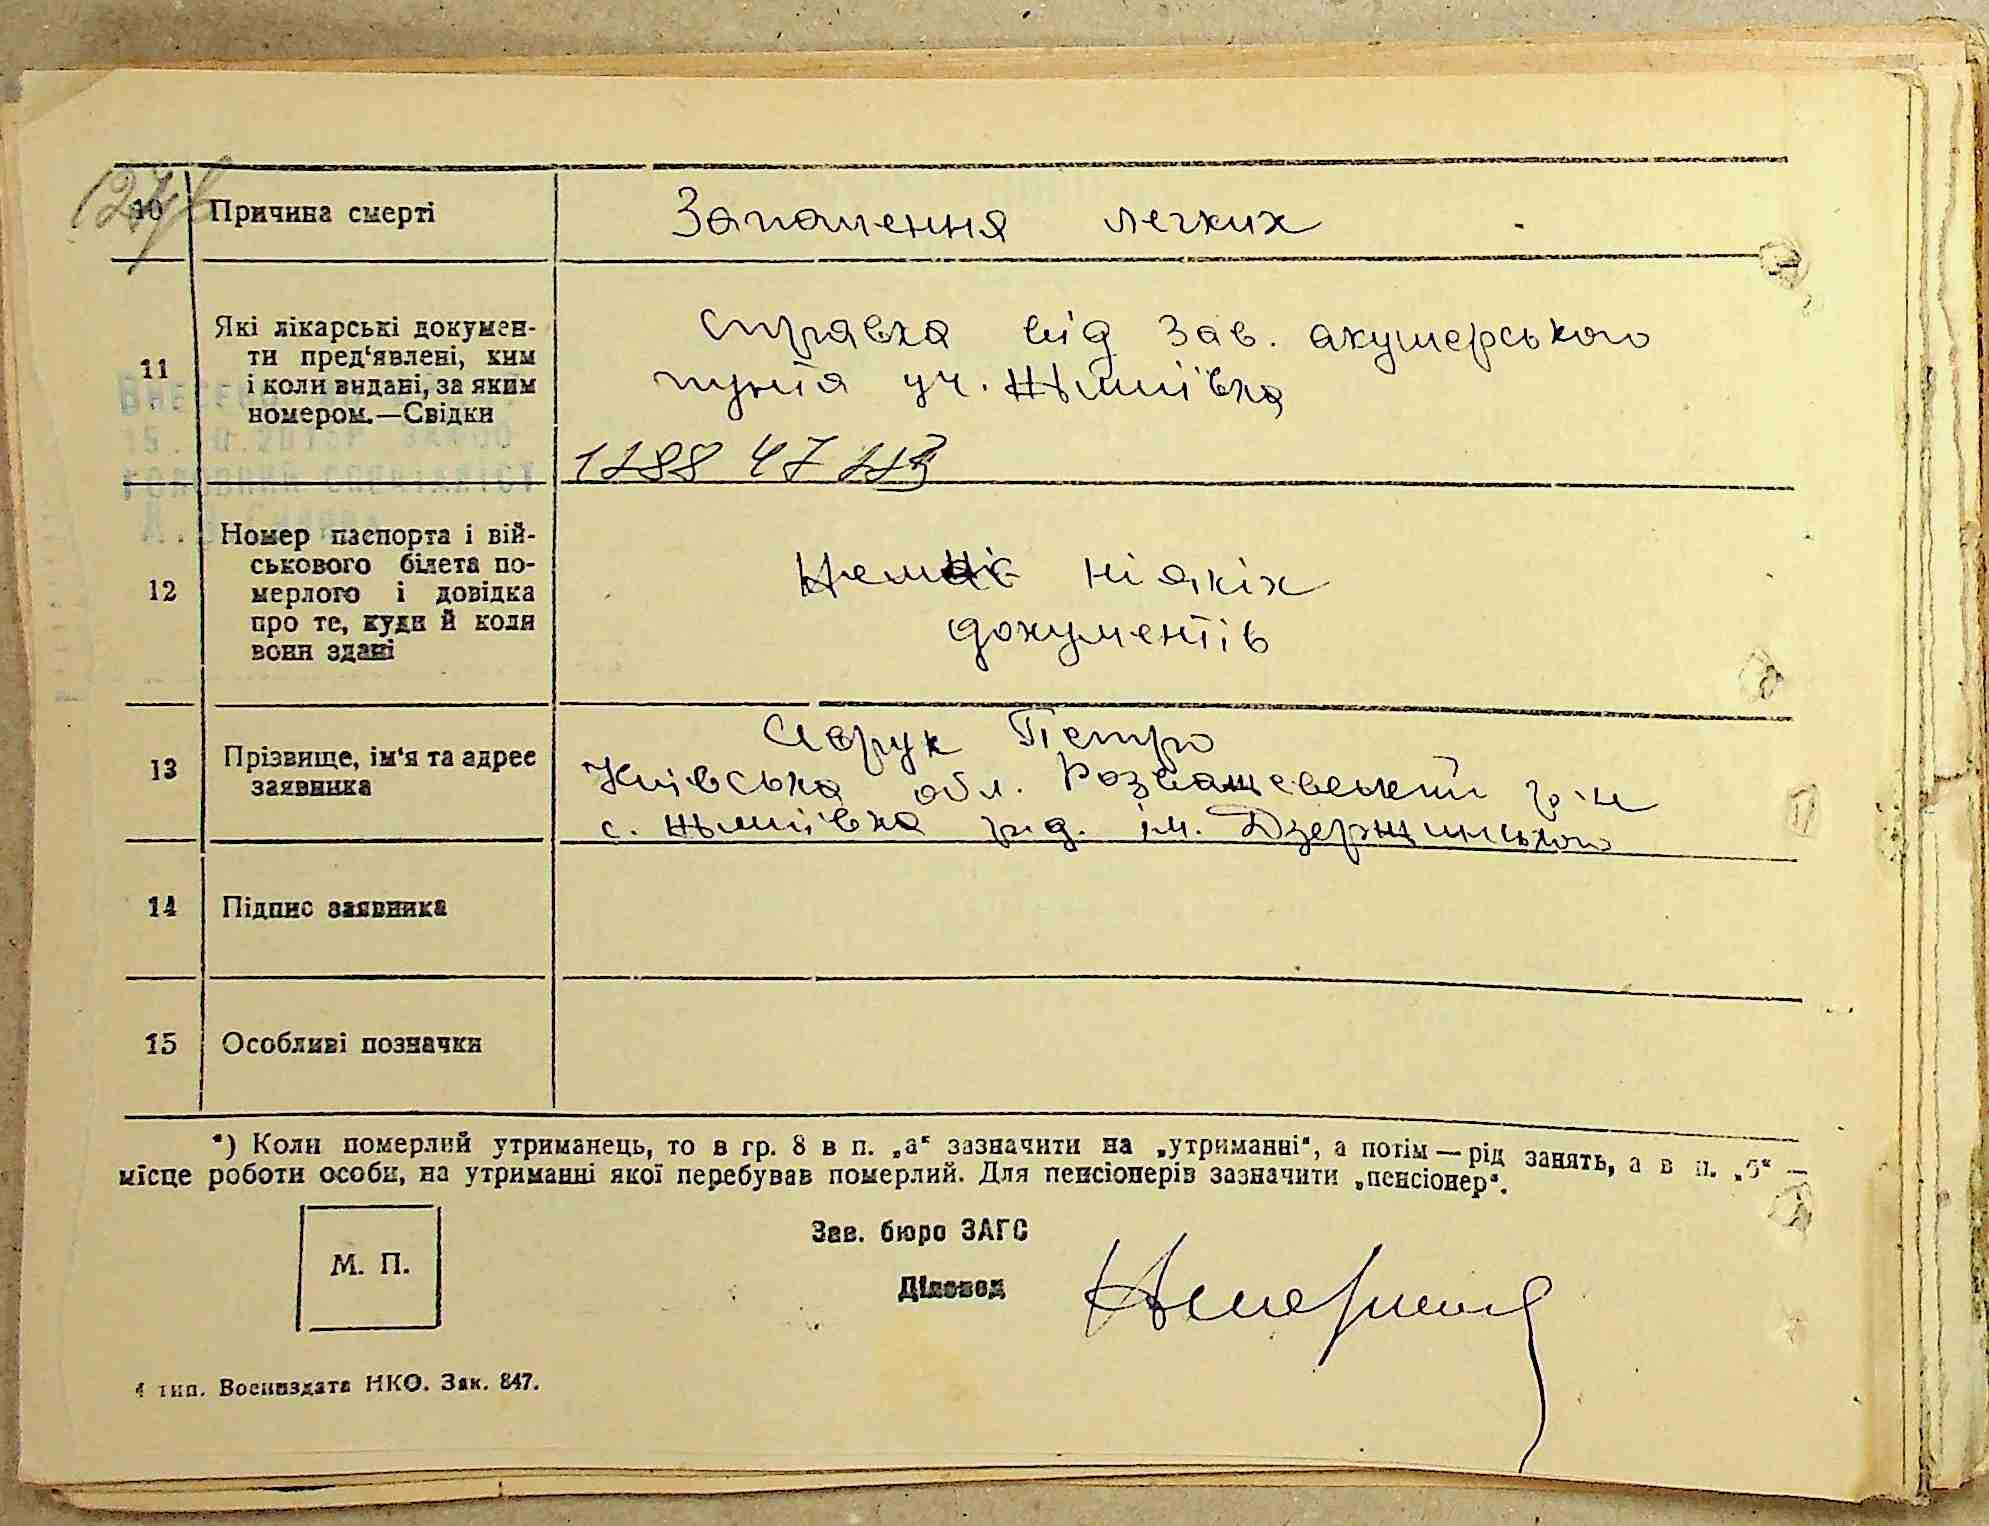 127
10 Причина смерті
Запалення легких
11 Які лікарські докумен-
ти пред'явлені, ким
і коли видані, за яким
номером.—Свідки
справка від зав. акушерського
пункта уч.
12 Номер паспорта і вій-
ськового білета по-
мерлого і довідка
про те, куди й коли
вони здані
Немає ніякіх
документів
13 Прізвище, ім'я та адрес
заявника
Яврук Петро
Київська обл. Розважевський р-н
с. рад. ім. Дзержинського
14 Підпис заявника
15 Особливі позначки
*) Коли померлий утриманець, то в гр. 8 в п. „а“ зазначити на „утриманні“, а потім — рід занять, а в п. „б“ —
місце роботи особи, на утриманні якої перебував померлий. Для пенсіонерів зазначити „пенсіонер“.
М. П.
Зав. бюро ЗАГС
Діловод
4 тип. Воениздата НКО. Зак. 847.